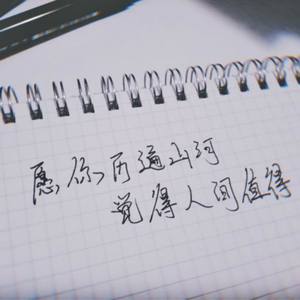 愿你历遍山河
觉得人间值得